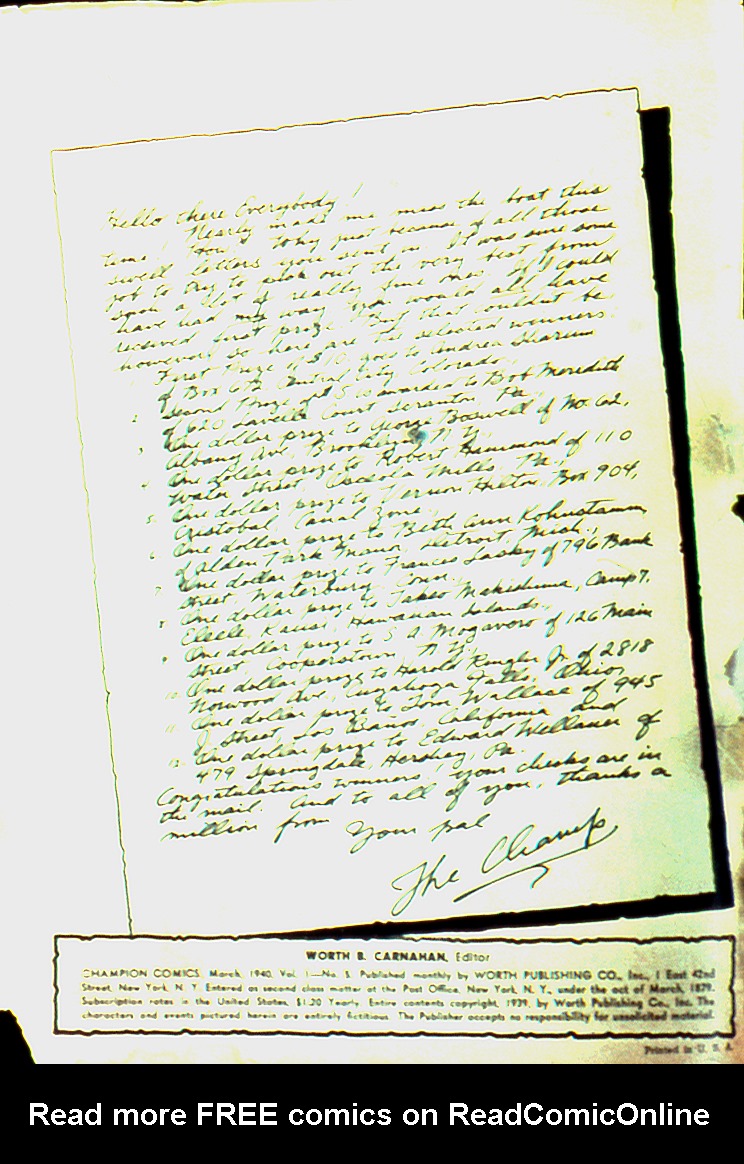 Hello there Everybody!
Nearly made me miss the boat this
time! How? Why just because of all those
swell letters you sent in. It was sure some
job to try to pick out the very best from
such a lot of really fine ones. If I could
have had my way you would all have
received first prize. But that couldn't be
however, so here are the selected winners.
First Prize of $10. goes to Andrea
of Box 672, Central City Colorado.,
2. Second Prize of $5 is awarded to Bob Meredith
of 620 Lavelle Court Scranton, Pa.,
3. One dollar prize to George Boswell of No. 62,
Albany Ave, Brooklyn, N.Y.,
4. One dollar prize to Robert Hammond of 110
Water Street, Osceola Mills, Pa.,
5. One dollar prize to Vernon Hilton, Box 904,
Cristobal, Canal Zone.,
6. One dollar prize to Beth Ann Kohnstamm
of Alden Park Manor, Detroit, Mich.,
7. One dollar prize to Frances Lasky of 796 Bank
Street Waterbury, Conn.,
8. One dollar prize to Takeo Makishima, Camp 7.
Eleele, Kauai, Hawaiian Islands.,
9. One dollar prize to S. A. Mogavero of 126 Main
Street, Cooperstown, N.Y.,
10. One dollar prize to Harold Ringler Jr. of 2818
Norwood Ave, Cuyahoga Falls, Ohio,
11. One dollar prize to Tom Wallace of 945
J Street, Los Banos, California and
12. One dollar prize to Edward Wellauer of
479 Springdale, Hershey, Pa.
Congratulations winners! your checks are in
the mail. And to all of you, thanks a
million from
Your pal
The Champ
WORTH B. CARNAHAN, Editor
CHAMPION COMICS, March, 1940, Vol. 1—No. 5. Published monthly by WORTH PUBLISHING CO., Inc., 1 East 42nd
Street, New York, N. Y. Entered as second class matter at the Post Office, New York, N. Y., under the act of March, 1879.
Subscription rates in the United States, $1.20 Yearly. Entire contents copyright, 1939, by Worth Publishing Co., Inc. The
characters and events pictured herein are entirely fictitious. The Publisher accepts no responsibility for unsolicited material.
Printed in U. S. A.
Read more FREE comics on ReadComicOnline